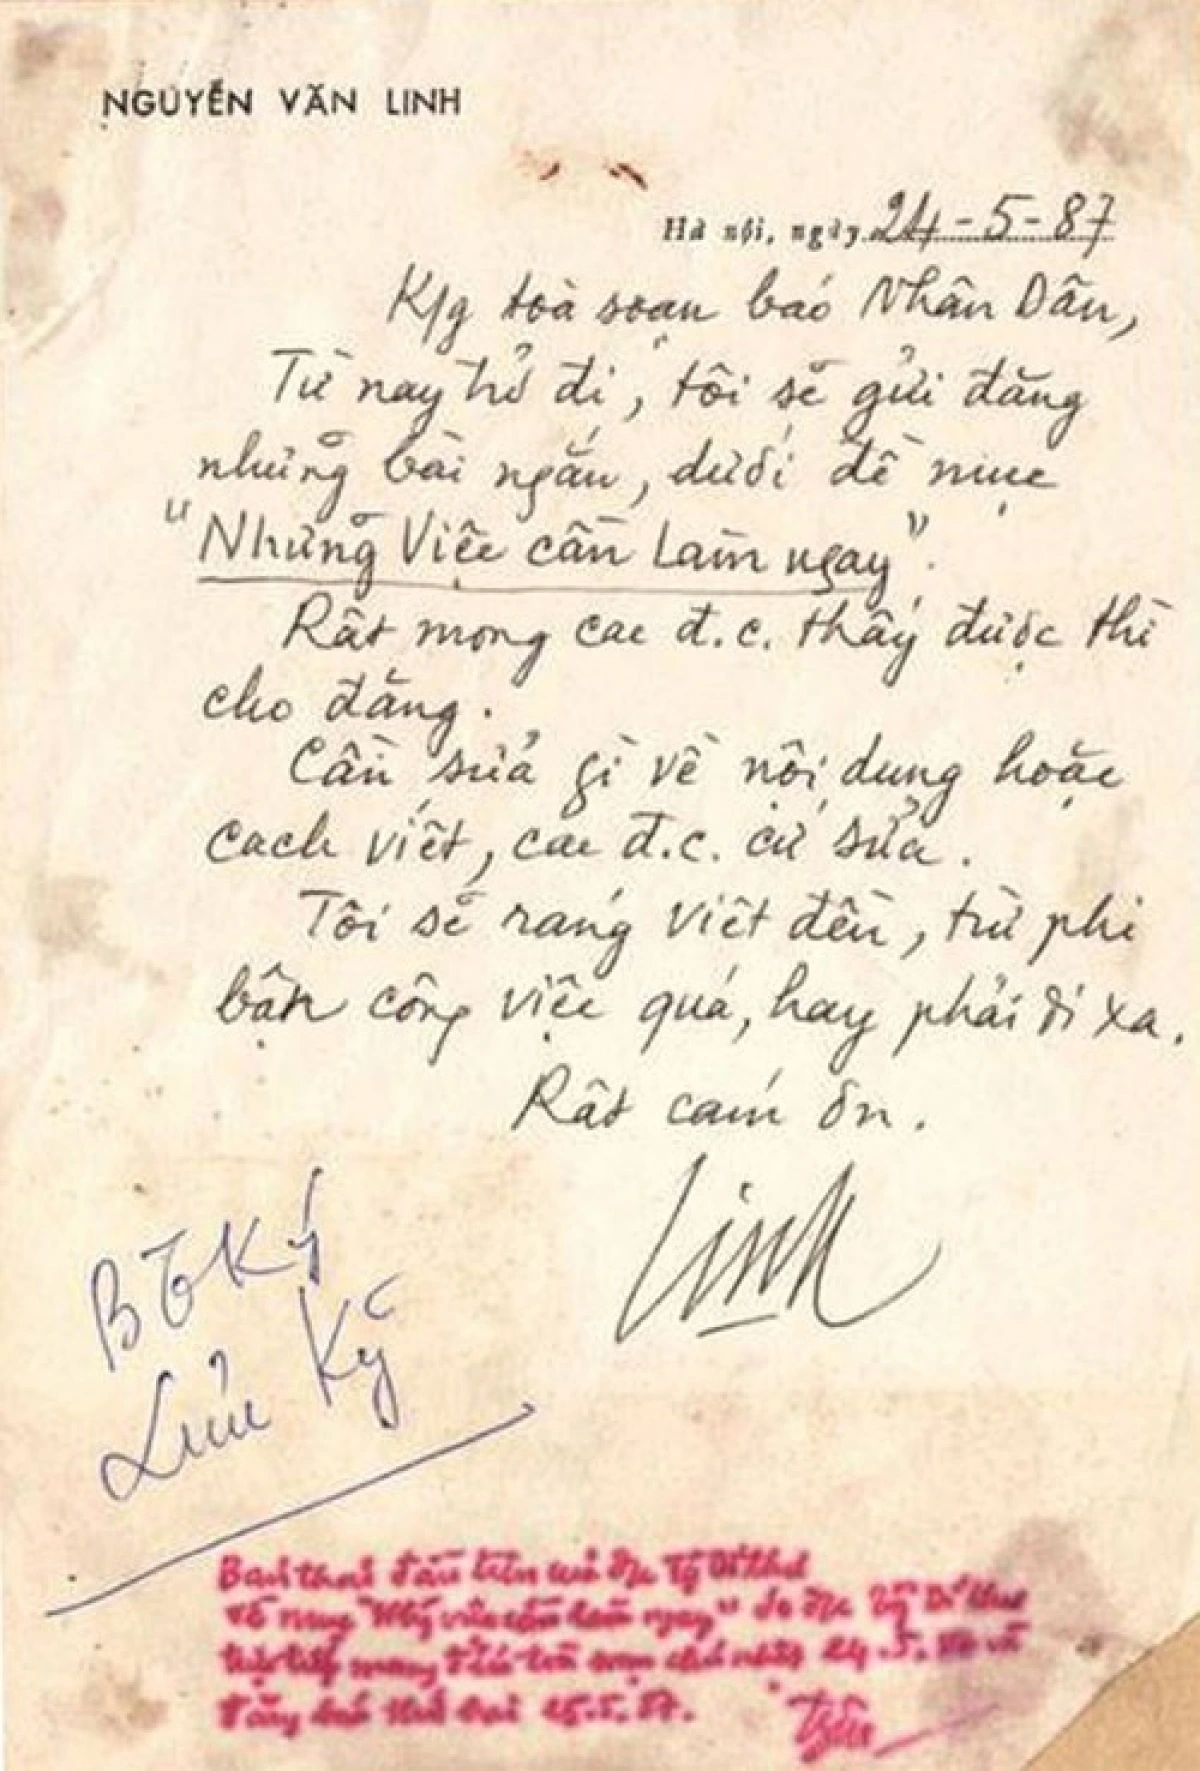 NGUYỄN VĂN LINH
Hà nội, ngày 24-5-87
K/g toà soạn báo Nhân Dân,
Từ nay trở đi, tôi sẽ gửi đăng
những bài ngắn, dưới đề mục
"Những Việc cần Làm ngay".
Rất mong các đ.c. thấy được thì
cho đăng.
Cần sửa gì về nội dung hoặc
cách viết, các đ.c. cứ sửa.
Tôi sẽ ráng viết đều, trừ phi
bận công việc quá, hay phải đi xa.
Rất cám ơn.
Linh
Lưu Kỹ
Bản thảo đầu tiên của đ/c Tổng Bí thư
về mục "Những việc cần làm ngay" do đ/c Tổng Bí thư
trực tiếp mang đến toà soạn chủ nhật 24.5.87 và
đăng báo thứ hai 25.5.87.